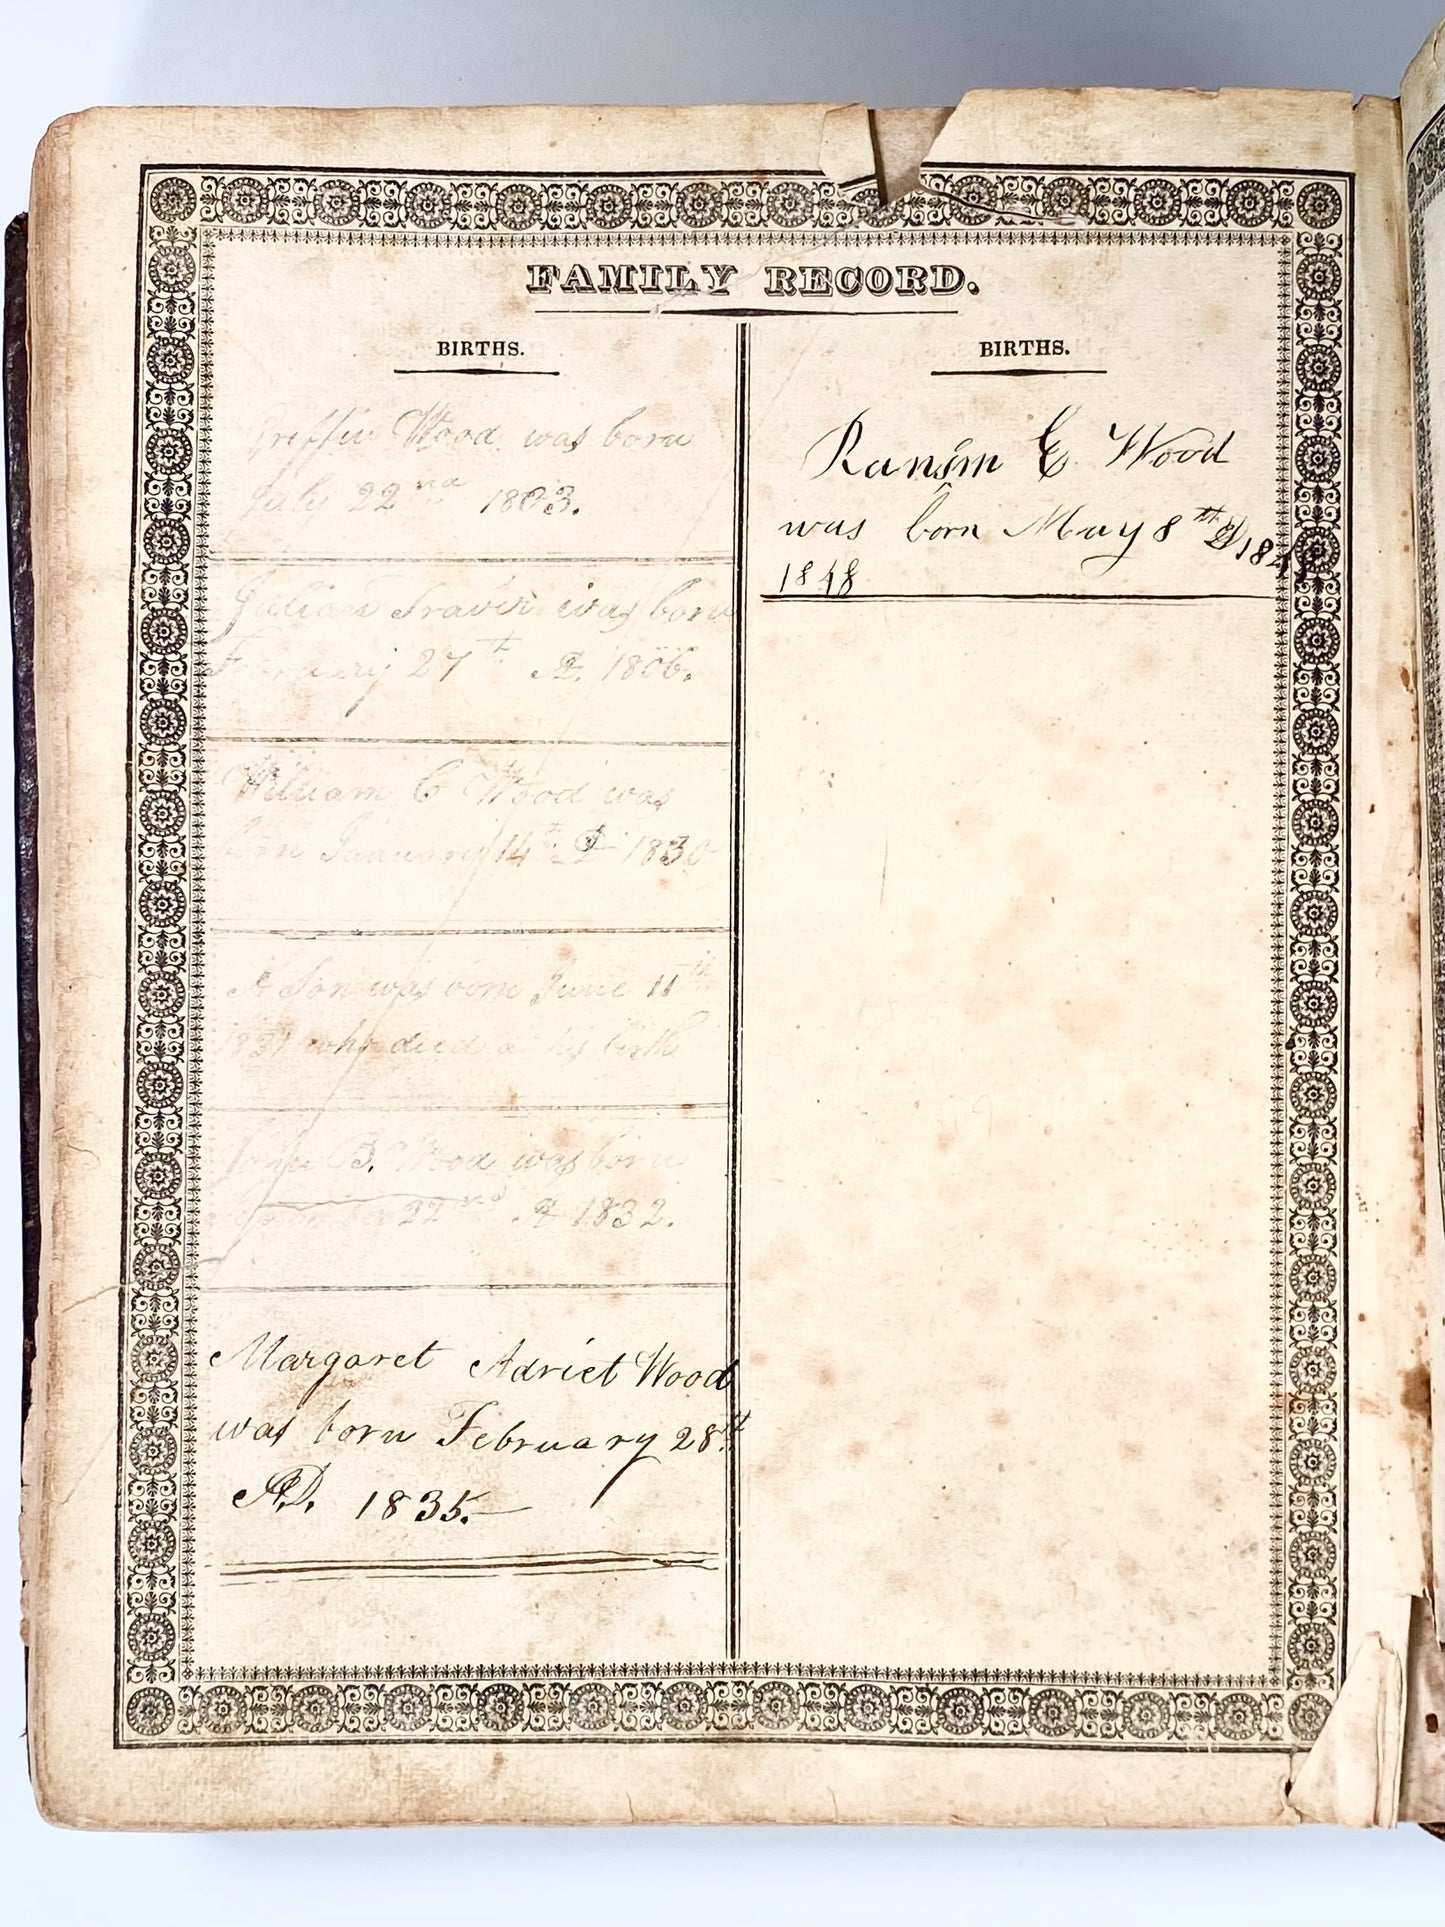 FAMILY RECORD.
BIRTHS.
Griffin Wood was born
July 22nd 1803.
Julian Traver was born
February 27th A. 1806.
William C Wood was
born January 14th AD 1830
A Son was born June 11th
1831 who died at his birth
John B. Wood was born
22nd A 1832.
Margaret Adriet Wood
was born February 28th
A.D. 1835.
BIRTHS.
Ransom E Wood
was born May 8th AD
1848